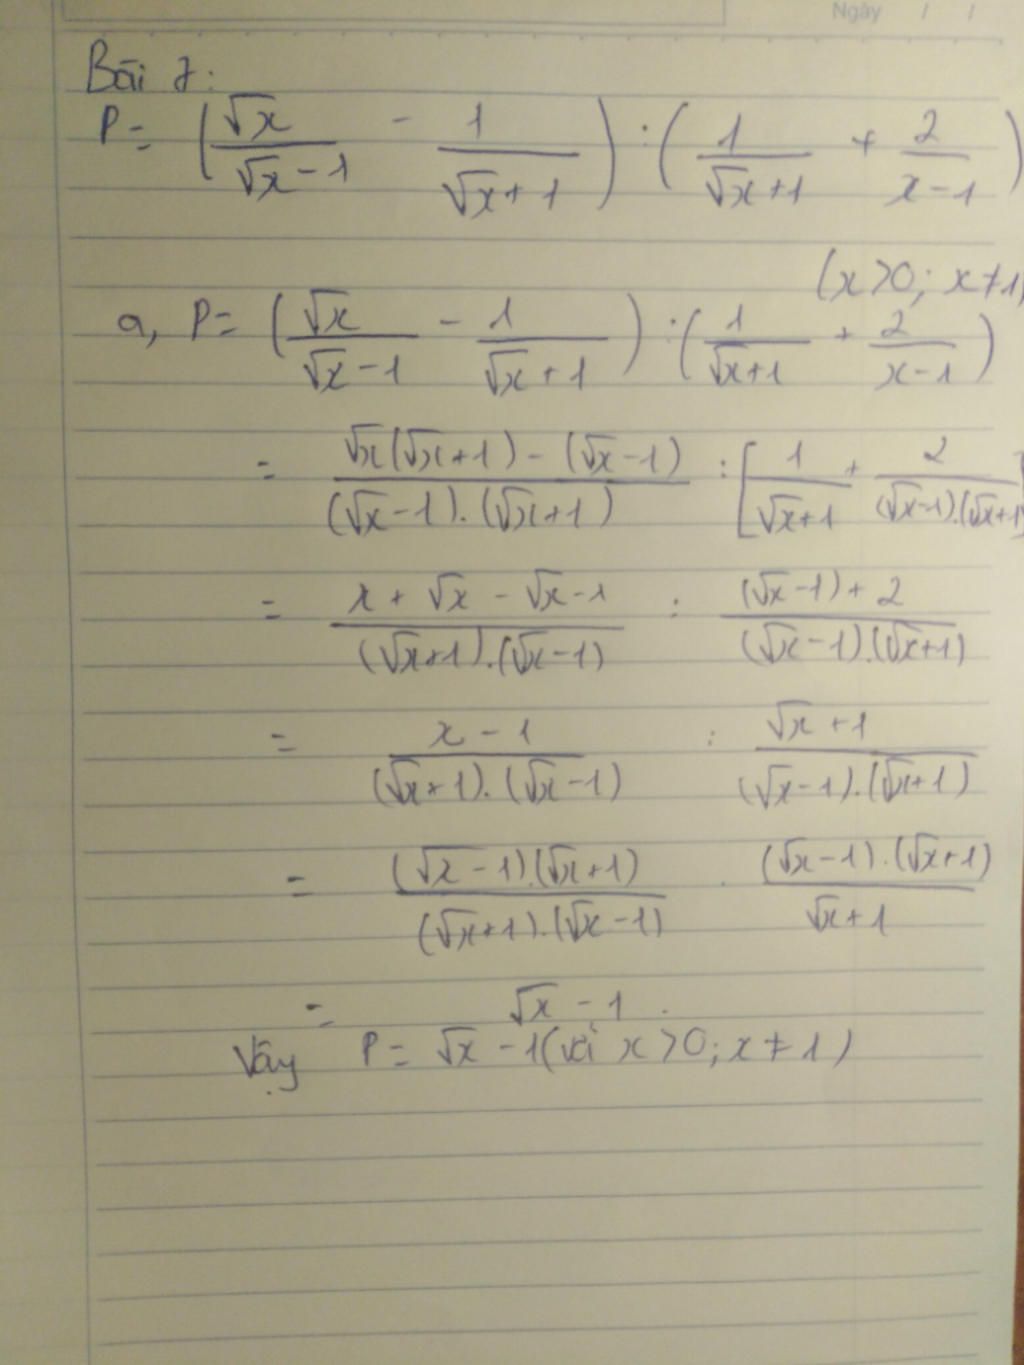 Ngày / /
Bài 7:
P = (√x/(√x-1) - 1/(√x+1)) : (1/(√x+1) + 2/(x-1))
(x>0; x≠1)
a, P = (√x/(√x-1) - 1/(√x+1)) : (1/(√x+1) + 2/(x-1))
= (√x(√x+1) - (√x-1))/((√x-1).(√x+1)) : [1/(√x+1) + 2/((√x-1).(√x+1))]
= (x + √x - √x - 1)/((√x+1).(√x-1)) : ((√x-1) + 2)/((√x-1).(√x+1))
= (x - 1)/((√x+1).(√x-1)) : (√x+1)/((√x-1).(√x+1))
= ((√x-1).(√x+1))/((√x+1).(√x-1)) . ((√x-1).(√x+1))/(√x+1)
= √x - 1.
Vậy P = √x - 1 (với x>0; x≠1)